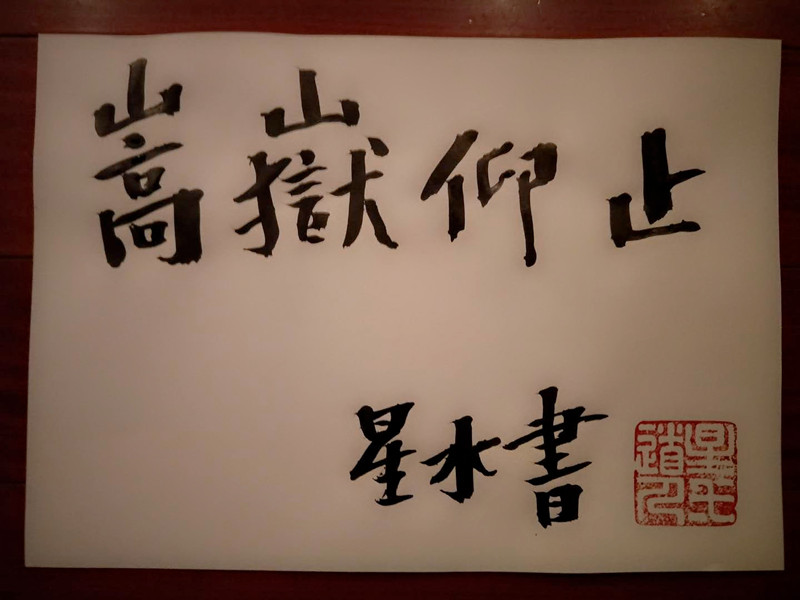 嵩嶽仰止
星水書
星
道人